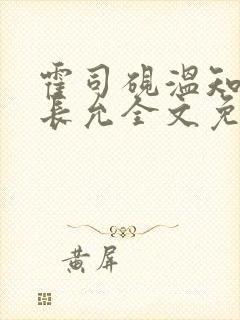 霍司砚温知
长允全文免
黄屏